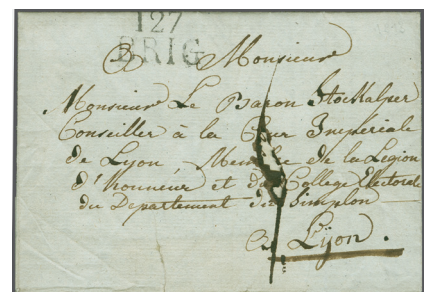 127
BRIG
A Monsieur
Monsieur Le Baron Stockalper
Conseiller à la Cour Impériale
de Lyon Membre de la Legion
d'Honneur et du College Electorale
du Departement du Simplon
A Lÿon.